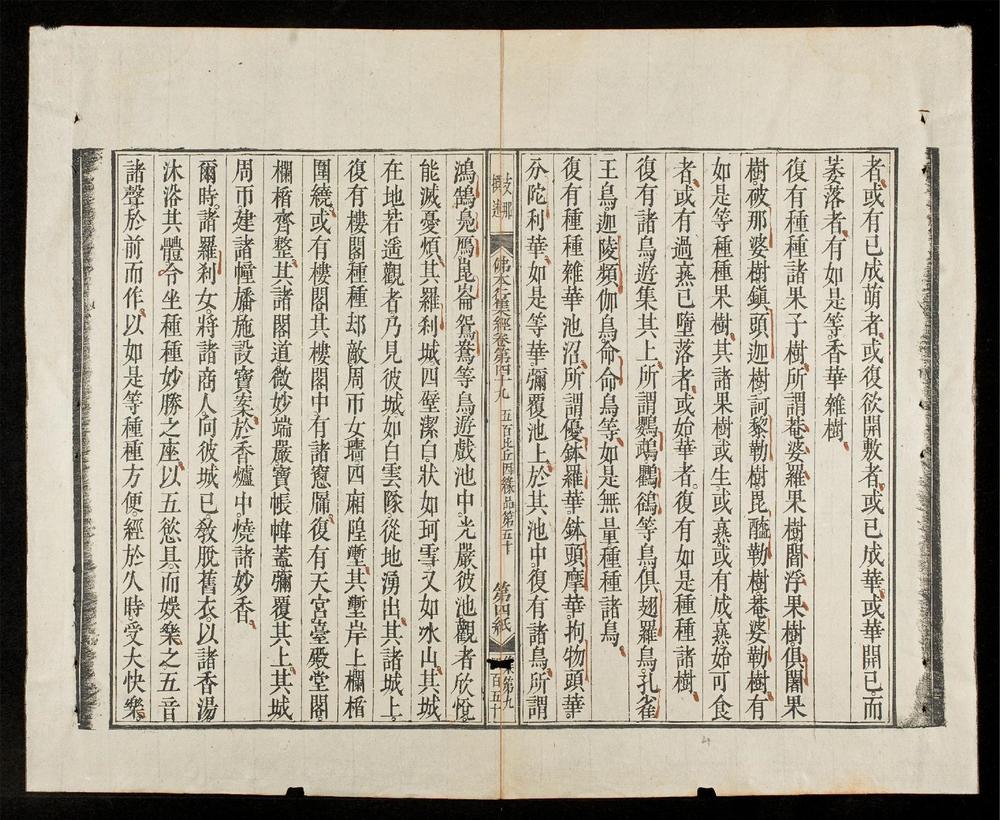 者。或有已成萌者。或復欲開敷者。或已成華。或華開已而
萎落者。有如是等香華雜樹。
復有種種諸果子樹。所謂菴婆羅果樹閻浮果樹俱闍果
樹。破那婆樹鎮頭迦樹訶黎勒樹毘醯勒樹菴婆勒樹。有
如是等種種果樹。其諸果樹或生。或熟或有成熟始可食
者。或有過熟已墮落者。或始華者。復有如是種種諸樹。
復有諸鳥遊集其上。所謂鸚鵡鸜鵒等鳥俱翅羅鳥孔雀
王鳥。迦陵頻伽鳥。命命鳥等。如是無量種種諸鳥。
復有種種雜華池沼。所謂優鉢羅華。鉢頭摩華。拘物頭華。
分陀利華。如是等華。彌覆池上。於其池中。復有諸鳥。所謂
支那
撰述
佛本行集經卷第四十九 五百比丘因緣品第五十 第四紙
鴻鵠鳧鴈崑崙鴛鴦等鳥遊戲池中。光嚴彼池。觀者欣悅。
能滅憂煩。其羅刹城四壁潔白。狀如珂雪。又如冰山。其城
在地若遥觀者乃見彼城如白雲隊。從地湧出。其諸城上。
復有樓閣種種却敵周帀女牆四廂隍塹。其塹岸上欄楯
圍繞。或有樓閣其樓閣中。有諸窻牖。復有天宮臺殿堂閣。
欄楯齊整。其諸閣道微妙端嚴寶帳幃蓋彌覆其上。其城
周帀建諸幢旛施設寶案。於香爐中。燒諸妙香。
爾時。諸羅刹女。將諸商人。向彼城已敎脫舊衣。以諸香湯
沐浴其體。令坐種種妙勝之座。以五慾具。而娛樂之五音
諸聲於前而作。以如是等種種方便。經於久時。受大快樂。